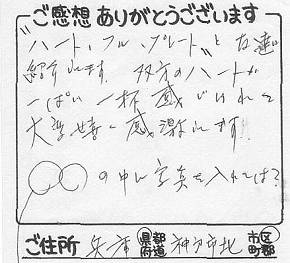 ご感想ありがとうございます
"ハート、フル、プレート"と友達
紹介します。双方のハートが
一ぱい一杯感じられて
大変嬉しく感激します。
の中に写真を入れては?
ご住所 兵庫 都道府県 神戸市北 市区町郡